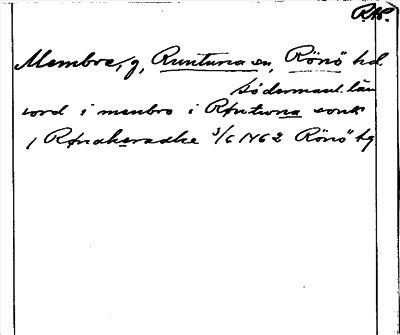 RAP.
Membre, g, Runtuna sn, Rönö hd.
Södermanl. län
iord i menbro i Rþntuna sonk
i Rþndheradhe 3/6 1462 Rönö hg